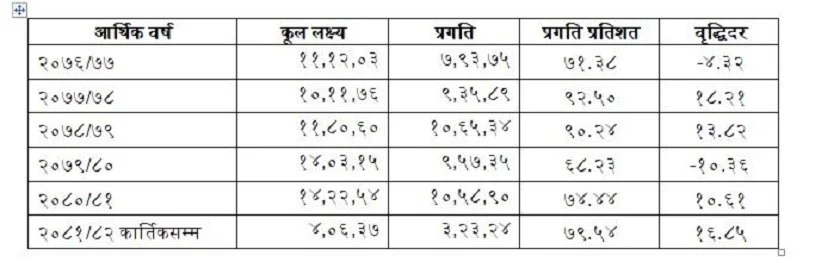 आर्थिक वर्ष कूल लक्ष्य प्रगति प्रगति प्रतिशत वृद्धिदर
२०७६/७७ ११,१२,०३ ७,९३,७५ ७१.३८ -४.३२
२०७७/७८ १०,११,७६ ९,३५,८९ ९२.५० १८.२१
२०७८/७९ ११,८०,६० १०,६५,३४ ९०.२४ १३.८२
२०७९/८० १४,०३,१५ ९,५७,३५ ६८.२३ -१०.३६
२०८०/८१ १४,२२,५४ १०,५८,९० ७४.४४ १०.६१
२०८१/८२ कार्तिकसम्म ४,०६,३७ ३,२३,२४ ७९.५४ १६.८५